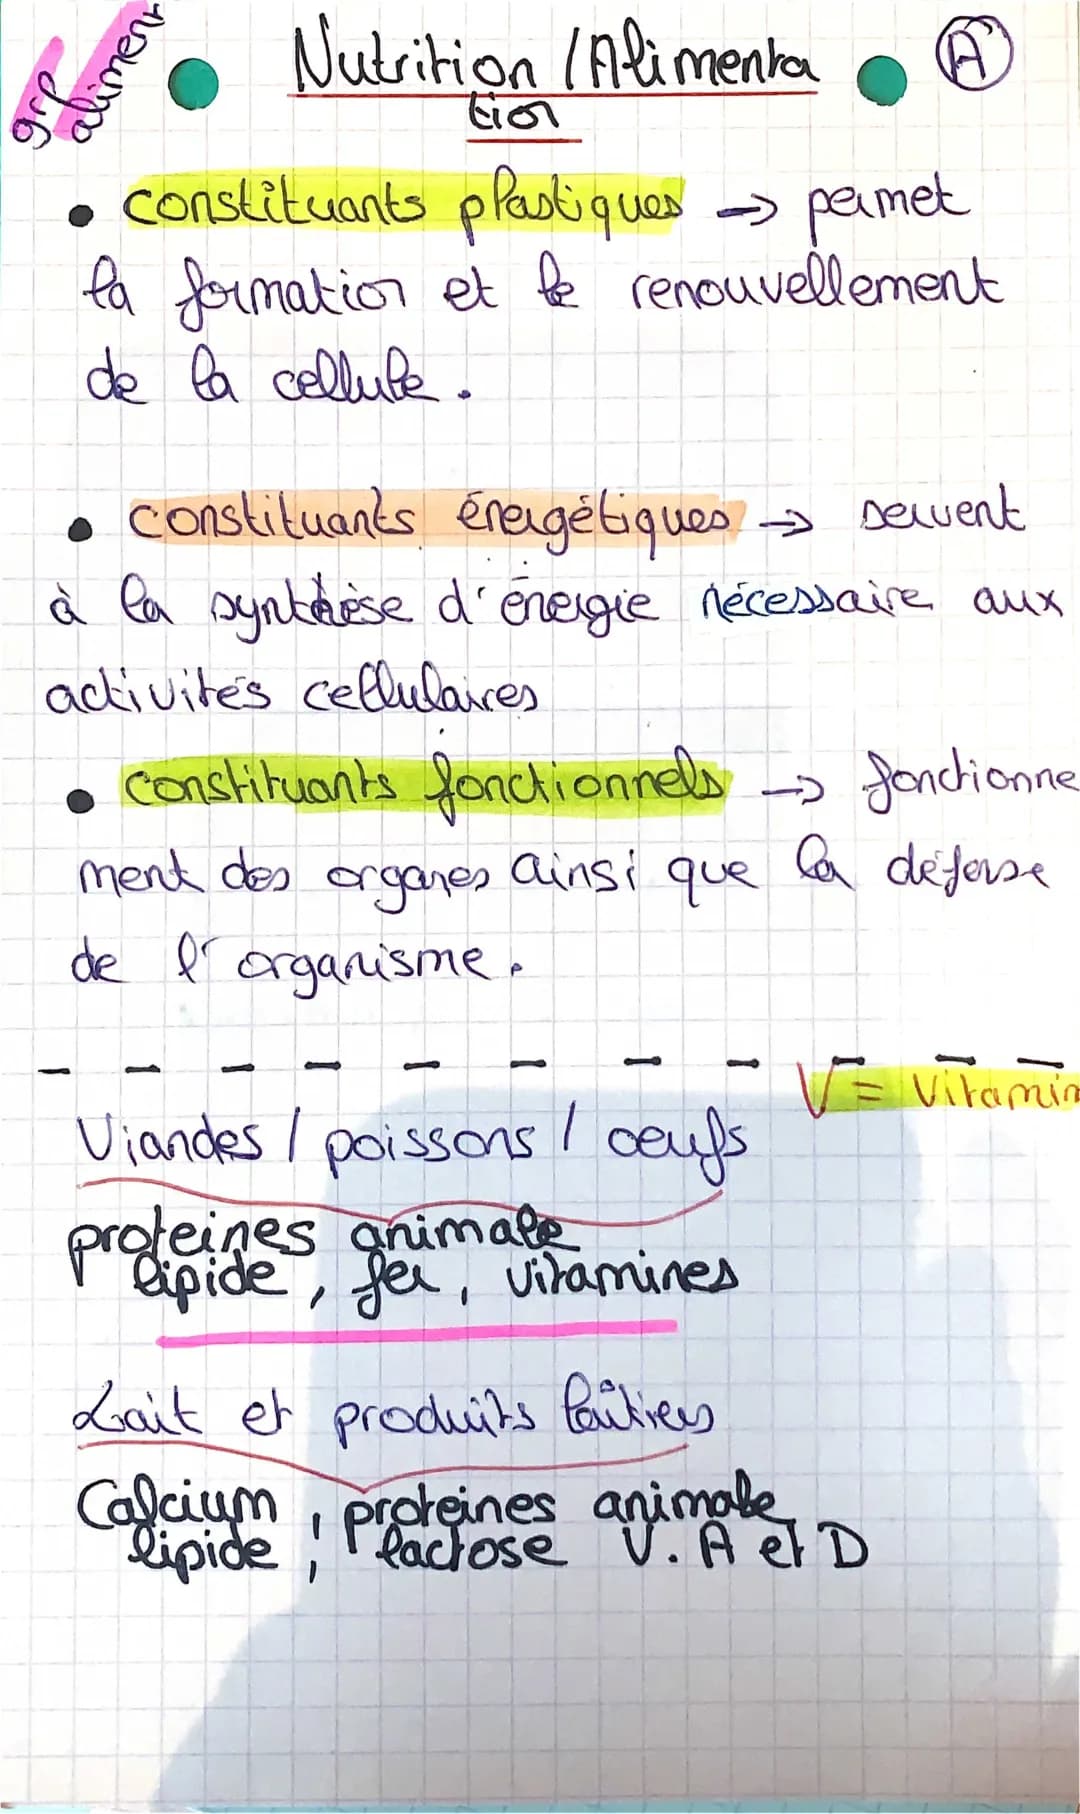 grp
aliment
Nutrition / Alimenta
tion
A
• constituants plastiques → permet
la formation et le renouvellement
de la cellule.
• constituants énergétiques → servent
à la synthèse d'énergie nécessaire aux
activités cellulaires
• constituants fonctionnels → fonctionne
ment des organes ainsi que la défense
de l'organisme.
V = Vitamin
Viandes / poissons / oeufs
proteines animale
lipide, fer, vitamines
Lait et produits laîtiers
Calcium, proteines animale,
lipide, lactose V. A et D